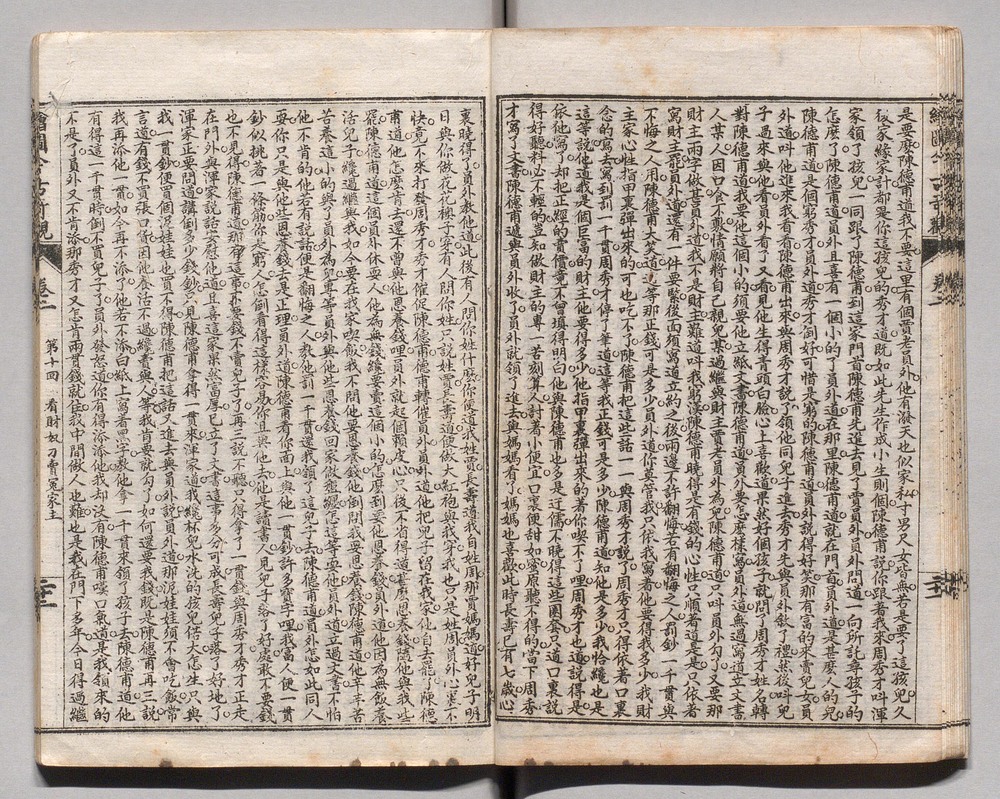 是要麼陳德甫道我不要這里有個賈老員外他有潑天也似家私寸男尺女皆無若是要了這孩兒久
後家緣家計都是你這孩兒的秀才道既如此先生作成小生則個陳德甫說你跟著我來周秀才叫渾
家領了孩兒一同跟了陳德甫到這家門首陳德甫先進去見了賈員外員外問道一向所託尋孩子的
怎麼了陳德甫道員外且喜有一個小的了員外道在那里陳德甫道就在門首員外道是甚麼人的兒
陳德甫道是個窮秀才員外道秀才倒好可惜是窮的陳德甫道員外說得好笑那有富的來賣兒女員
外道叫他進來我看看陳德甫出來與周秀才說了領他同兒子進去秀才先與員外敘了禮然後叫兒
子過來與他看員外看了又看見他生得青頭白臉心上喜歡道果然好個孩子就問了周秀才姓名轉
對陳德甫道我要他這個小的須要他立紙文書陳德甫道員外要怎麼樣寫員外道無過寫道立文書
人某人因口食不敷情願將自己親兒某過繼與財主賈老員外為兒陳德甫道只叫員外勾了又要那
財主兩字做甚員外道我不是財主難道叫我窮漢陳德甫曉得是有錢的心性只順著道是是只依著
寫財主罷員外道還有一件要緊後面須寫道立約之後兩邊不許翻悔若有翻悔之人罰鈔一千貫與
不悔之人用陳德甫大笑道這等那正錢可是多少員外道你莫管我只依我寫著他要得我多少我財
主家心性指甲裏彈出來的可也吃不了陳德甫把這些話一一與周秀才說了周秀才只得依著口裏
念的寫去寫到罰一千貫周秀才停了筆道這等我正錢可是多少陳德甫道知他是多少我恰纔也是
這等說他道我是個巨富的財主他要得多少他指甲裏彈出來的者你喫不了哩周秀才也道說得是
依他寫了却把正經的賣價竟不曾填得明白他與陳德甫也多是迂儒不曉得這些圈套只道口裏說
得好聽料必不輕的豈知做財主的專一苦刻算人討著小便宜口裏便甜如蜜原聽不得的當下周秀
才寫了文書陳德甫遞與員外收了員外就領了進去與媽媽看了媽媽也喜歡此時長壽已有七歲心
裏曉得了員外教他道此後有人問你姓什麼你便道我姓賈長壽道我自姓周那賈媽媽道好兒子明
日與你做花花襖子穿有人問你姓只說姓賈長壽道便做大紅袍與我穿我也只是姓周員外心裏不
快竟不來打發周秀才秀才催促陳德甫德甫轉催員外員外道他把兒子留在我家他自去罷了陳德
甫道他怎麼肯去還不曾與他恩養錢哩員外就起個賴皮心只後不省得道甚麼恩養錢隨他與我些
罷陳德甫道這個員外休耍人他為無錢纔要賣這個小的怎麼到要他恩養錢員外道他因為無飯養
活兒子纔過繼與我如今要在我家喫飯我不問他要恩養錢他倒問我要恩養錢陳德甫道他辛辛苦
苦養這小的與了員外為兒專等員外與他些恩養錢回家做盤纏怎這等耍他員外道立過文書不怕
他不肯了他若有說話便是翻悔之人教他罰一千貫還我領了這兒子去陳德甫道員外怎如此鬥人
耍你只是與他些恩養錢去是正理員外道陳德甫看你面上與他一貫鈔許多寶字哩我富人使一貫
鈔似挑著一條筋你是窮人怎倒看得這樣容易你且與他去他是讀書人見兒子落了好處敢不要錢
也不見得陳德甫道那有這事不要錢不賣兒子了再三說不聽只得拿了一貫錢與周秀才秀才正走
在門外與渾家說話安慰他道且喜這家果然富厚已立了文書這事多分可成長壽兒子落了好地了
渾家正要問道講倒多少錢鈔只見陳德甫拿得一貫來渾家道我幾杯兒水洗的孩兒偌大怎生只與
我一貫鈔便買個泥娃娃也買不得陳德甫把這話又進去與員外說員外道那泥娃娃須不會吃飯常
言道有錢不買張口貨因他養活不過纔賣與人等我肯要就勾了如何還要我錢既是陳德甫再三說
我再添他一貫如今再不添了他若不添白紙上寫著黑字教他拿一千貫來領了孩子去陳德甫道他
有得這一千貫時倒不賣兒子了員外發怒道你有得添添他我却沒有陳德甫嘆口氣道是我領來的
不是了員外又不肯添那秀才又怎肯兩貫錢就住我中間做人也難也是我在門下多年今日得過繼
第十四 看財奴刁買冤家主